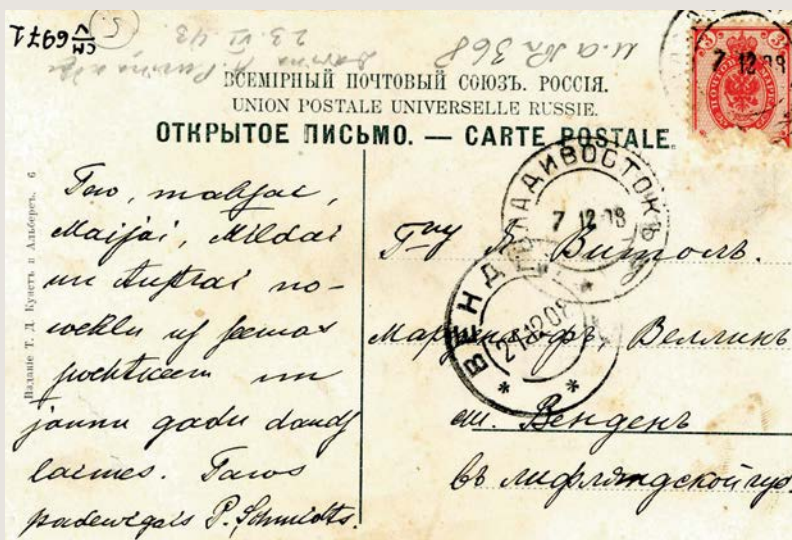 СМ V 6971
5
23. VI. 43
И.А. № 368
ВСЕМІРНЫЙ ПОЧТОВЫЙ СОЮЗЪ. РОССІЯ.
UNION POSTALE UNIVERSELLE RUSSIE.
ОТКРЫТОЕ ПИСЬМО. — CARTE POSTALE.
7 12 08
Изданіе Т. Д. Кунстъ и Альберсъ. 6
Tew, mahsai,
Maijai, Mildai
un Austrai no-
wehlu us seemas
swehtkeem un
jaunu gadu daudz
laimes. Taws
padewigais P. Schmidts.
ВЛАДИВОСТОКЪ
7 12 08
ВЕНДЕНЪ
21 12 08
Г-ну Я. Витоль.
Марценгофъ, Велликъ
ст. Венденъ
въ Лифляндской губ.